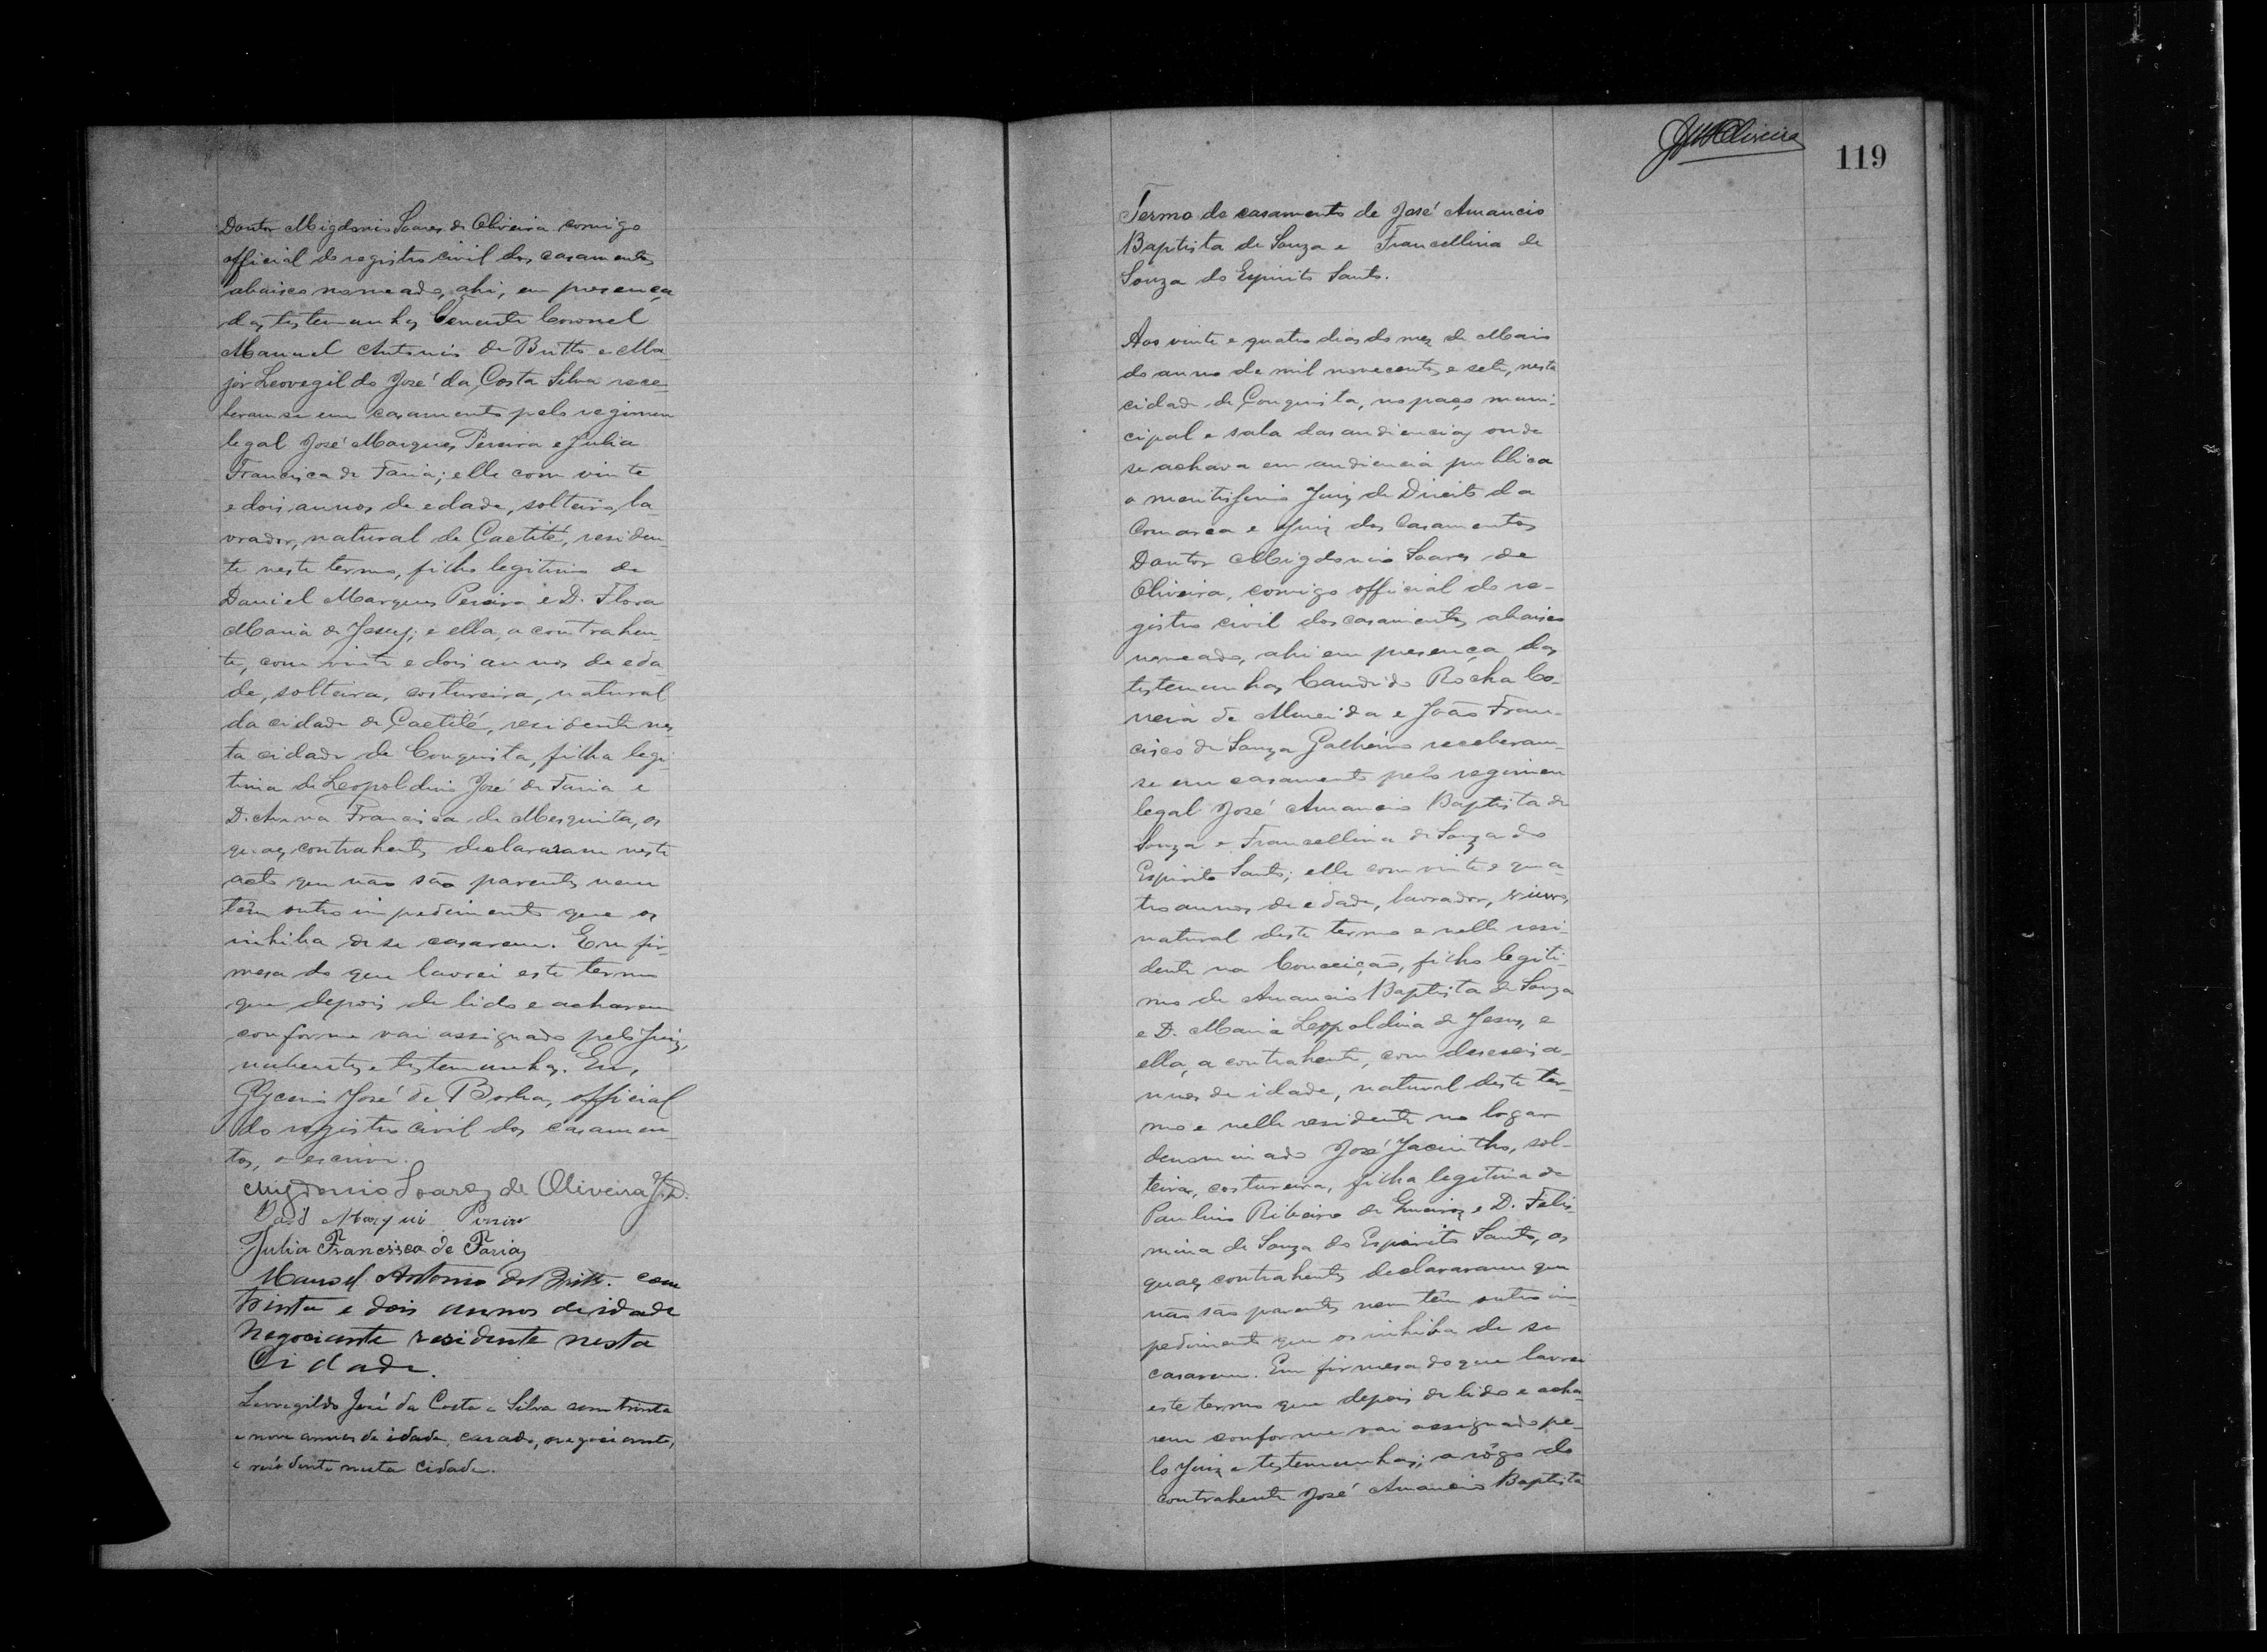 Doutor Migdonio Soares de Oliveira comigo
official do registro civil dos casamentos
abaixo nomeado, ahi, em presença
das testemunhas Tenente Coronel
Manuel Antonio de Britto e Ma-
jor Leovegildo José da Costa Silva rece-
beram-se em casamento pelo regimen
legal José Marques Pereira e Julia
Francisca de Faria; elle com vinte
e dois annos de edade, solteiro, la-
vrador, natural de Caetité, residen-
te neste termo, filho legitimo de
Daniel Marques Pereira e D. Flora
Maria de Jesus; e ella, a contrahen-
te, com vinte e dois annos de eda-
de, solteira, costureira, natural
da cidade de Caetité, residente nes-
ta cidade de Conquista, filha legi-
tima de Leopoldino José de Faria e
D. Anna Francisca de Mesquita, os
quaes contrahentes declararam neste
acto que não são parentes nem
têm outro impedimento que os
inhiba de se casarem. Em fir-
mesa do que lavrei este termo
que depois de lido e acharem
conforme vai assignado pelo Juiz,
nubentes e testemunhas. Eu,
Glycerio José de Borba, official
do registro civil dos casamen-
tos, o escrivi.
Migdonio Soares de Oliveira J.D.
Marques
Julia Francisca de Farias
Manoel Antonio de Britto. com
trinta e dois annos de idade
Negociante residente nesta
Cidade.
Leovegildo José da Costa e Silva com trinta
e nove annos de idade, casado, negociante,
e residente nesta cidade.
Oliveira
119
Termo do casamento de José Amancio
Baptista de Souza e Francellina de
Souza do Espirito Santo.
Aos vinte e quatro dias do mez de Maio
do anno de mil novecentos e sete, nesta
cidade de Conquista, no paço muni-
cipal e sala das audiencias onde
se achava em audiencia publica
o meritissimo Juiz de Direito da
Comarca e Juiz dos Casamentos
Doutor Migdonio Soares de
Oliveira, comigo official do re-
gistro civil dos casamentos abaixo
nomeado, ahi em presença das
testemunhas Candido Rocha Co-
rreia de Almeida e João Fran-
cisco de Souza Galheiro receberam-
se em casamento pelo regimen
legal José Amancio Baptista de
Souza e Francellina de Souza do
Espirito Santo; elle com vinte e qua-
tro annos de edade, lavrador, viuvo,
natural deste termo e nelle resi-
dente na Conceição, filho legiti-
mo de Amancio Baptista de Souza
e D. Maria Leopoldina de Jesus, e
ella, a contrahente, com deseseis a-
nnos de idade, natural deste ter-
mo e nelle residente no logar
denominado José Jacintho, sol-
teira, costureira, filha legitima de
Paulino Ribeiro de e D. Felis-
mina de Souza do Espirito Santo, os
quaes contrahentes declararam que
não são parentes nem têm outro im-
pedimento que os inhiba de se
casarem. Em firmesa do que lavrei
este termo que depois de lido e acha-
rem conforme vai assignado pe-
lo Juiz e testemunhas; a rôgo do
contrahente José Amancio Baptista